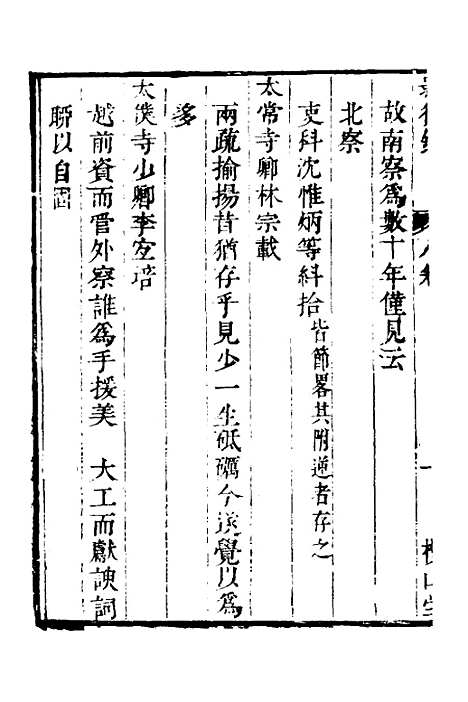 故南察為數十年僅見云
北察
吏科沈惟炳等糾拾皆節畧其附逆者存之
太常寺卿林宗載
兩疏揄揚昔猶存乎見少一生砥礪今遂覺以為
多
太僕寺少卿李宜培
越前資而管外察誰為手援美 大工而獻諛詞
聯以自固